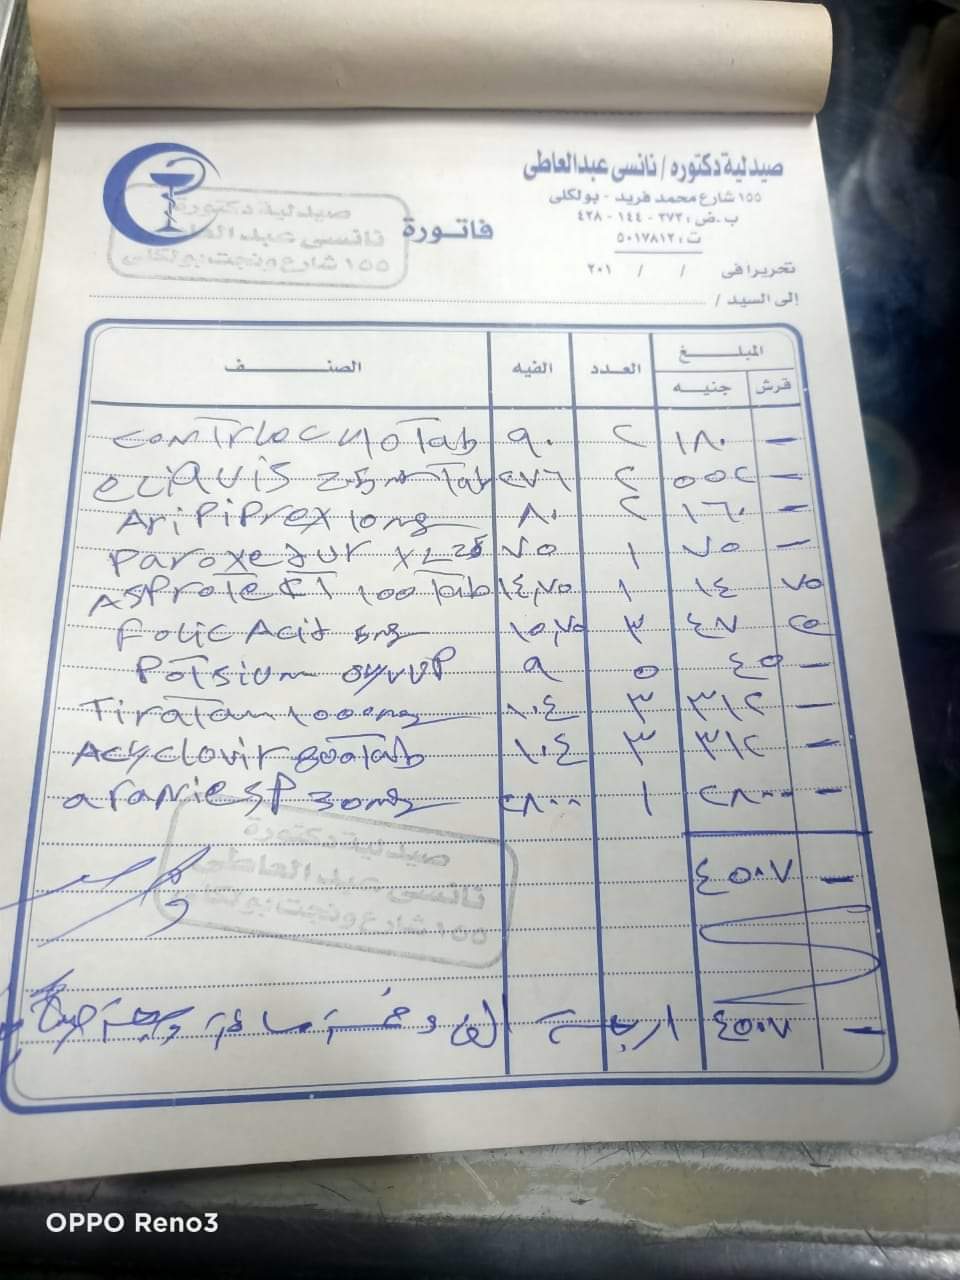 صيدلية دكتوره / نانسى عبد العاطى
١٥٥ شارع محمد فريد - بولكلى
ب.ض : ٣٧٣ - ١٤٤ - ٤٢٨
ت : ٥٠١٧٨١٢
فاتورة
صيدلية دكتورة
نانسى عبد العاطى
١٥٥ شارع ونجت بولكلى
تحريرا فى / / ٢٠١
إلى السيد /
المبلغ العدد الفيه الصنف
قرش جنيه
- ١٨٠ ٢ ٩٠ Controloc 40 Tab
- ٥٥٢ ٢ ٢٧٦ eliquis 2.5 m Tab
- ١٦٠ ٢ ٨٠ AriPiPrex 10mg
- ٧٥ ١ ٧٥ Paroxedur x 25
٧٥ ١٤ ١ ١٤,٧٥ AsProtect 100 Tab
٢٥ ٤٧ ٣ ١٥,٧٥ Folic Acid 5mg
- ٤٥ ٥ ٩ Potsium syruP
- ٣١٢ ٣ ١٠٤ Tiratam 1000mg
- ٣١٢ ٣ ١٠٤ Acyclovir 800 Tab
- ٢٨٠٠ ١ ٢٨٠٠ aranesP 30mg
صيدلية دكتورة
نانسى عبد العاطى
١٥٥ شارع ونجت بولكلى
- ٤٥٠٧
- ٤٥٠٧ اربعة الف و خمسمائة وسبعة
OPPO Reno3